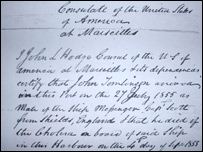 Consulate of the United States
of America
at Marseilles
I John L Hodge Consul of the U S of
America at Marseilles & its dependencies
certify that John Tomlinson arrived
in this Port on the 27 July, 1855 as
Mate of the Ship
from Shields, England & that he died of
the Cholera on board of said Ship
in this Harbour on the 4 day of Sept 1855